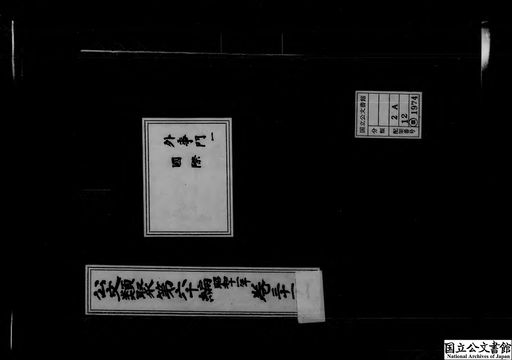 国立公文書館
分類
配架番号
2A
12
㊞1974
外事門一
國際
公文類聚第六十編 昭和十一年 巻三十一
国立公文書館
National Archives of Japan